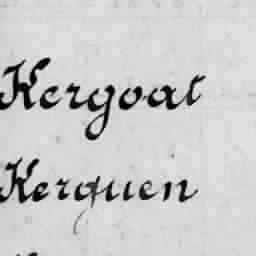 Kergoat
Kerquen